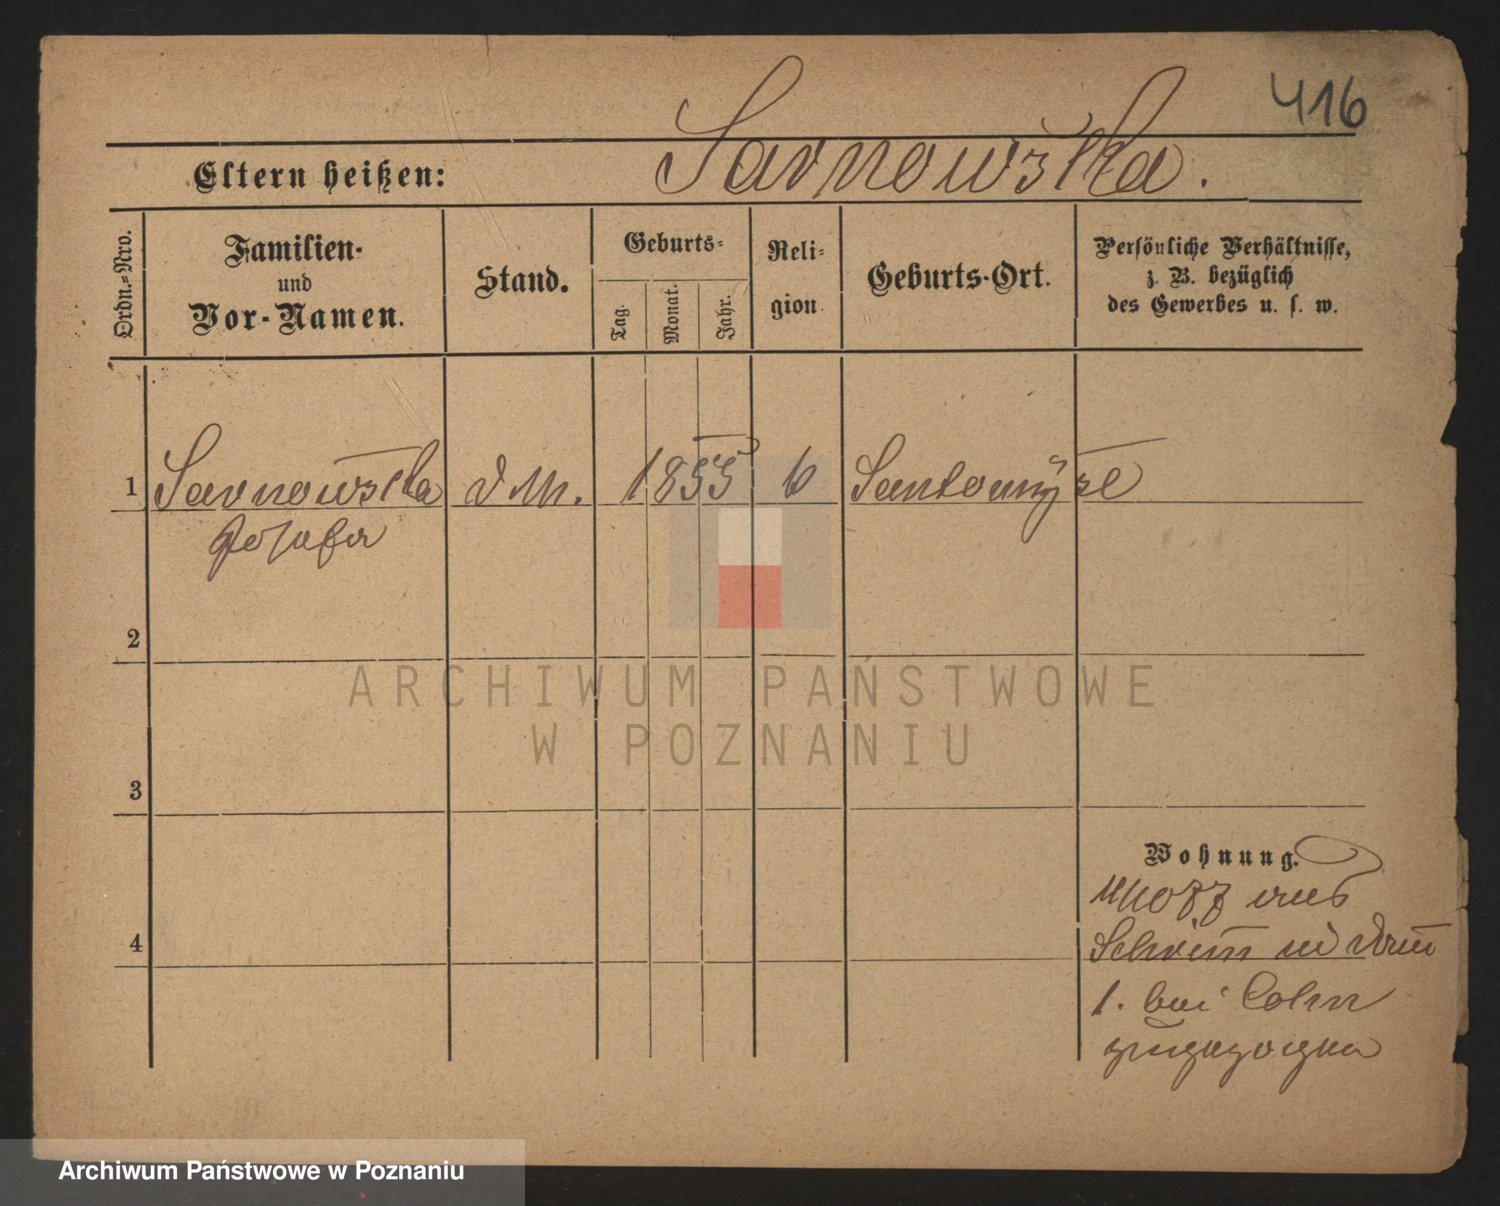 416
Eltern heißen: Sarnowska.
Ordn.=Nro.
Familien-
und
Vor-Namen.
Stand.
Geburts=
Tag.
Monat.
Jahr.
Reli=
gion
Geburts-Ort.
Persönliche Verhältnisse,
z. B. bezüglich
des Gewerbes u. s. w.
1 Sarnowska d. M. 1855 Santomysl
Josefa
2
3
4
Wohnung.
aus
Schrim
1. bei Cohn
zugezogen
ARCHIWUM PAŃSTWOWE
W POZNANIU
Archiwum Państwowe w Poznaniu